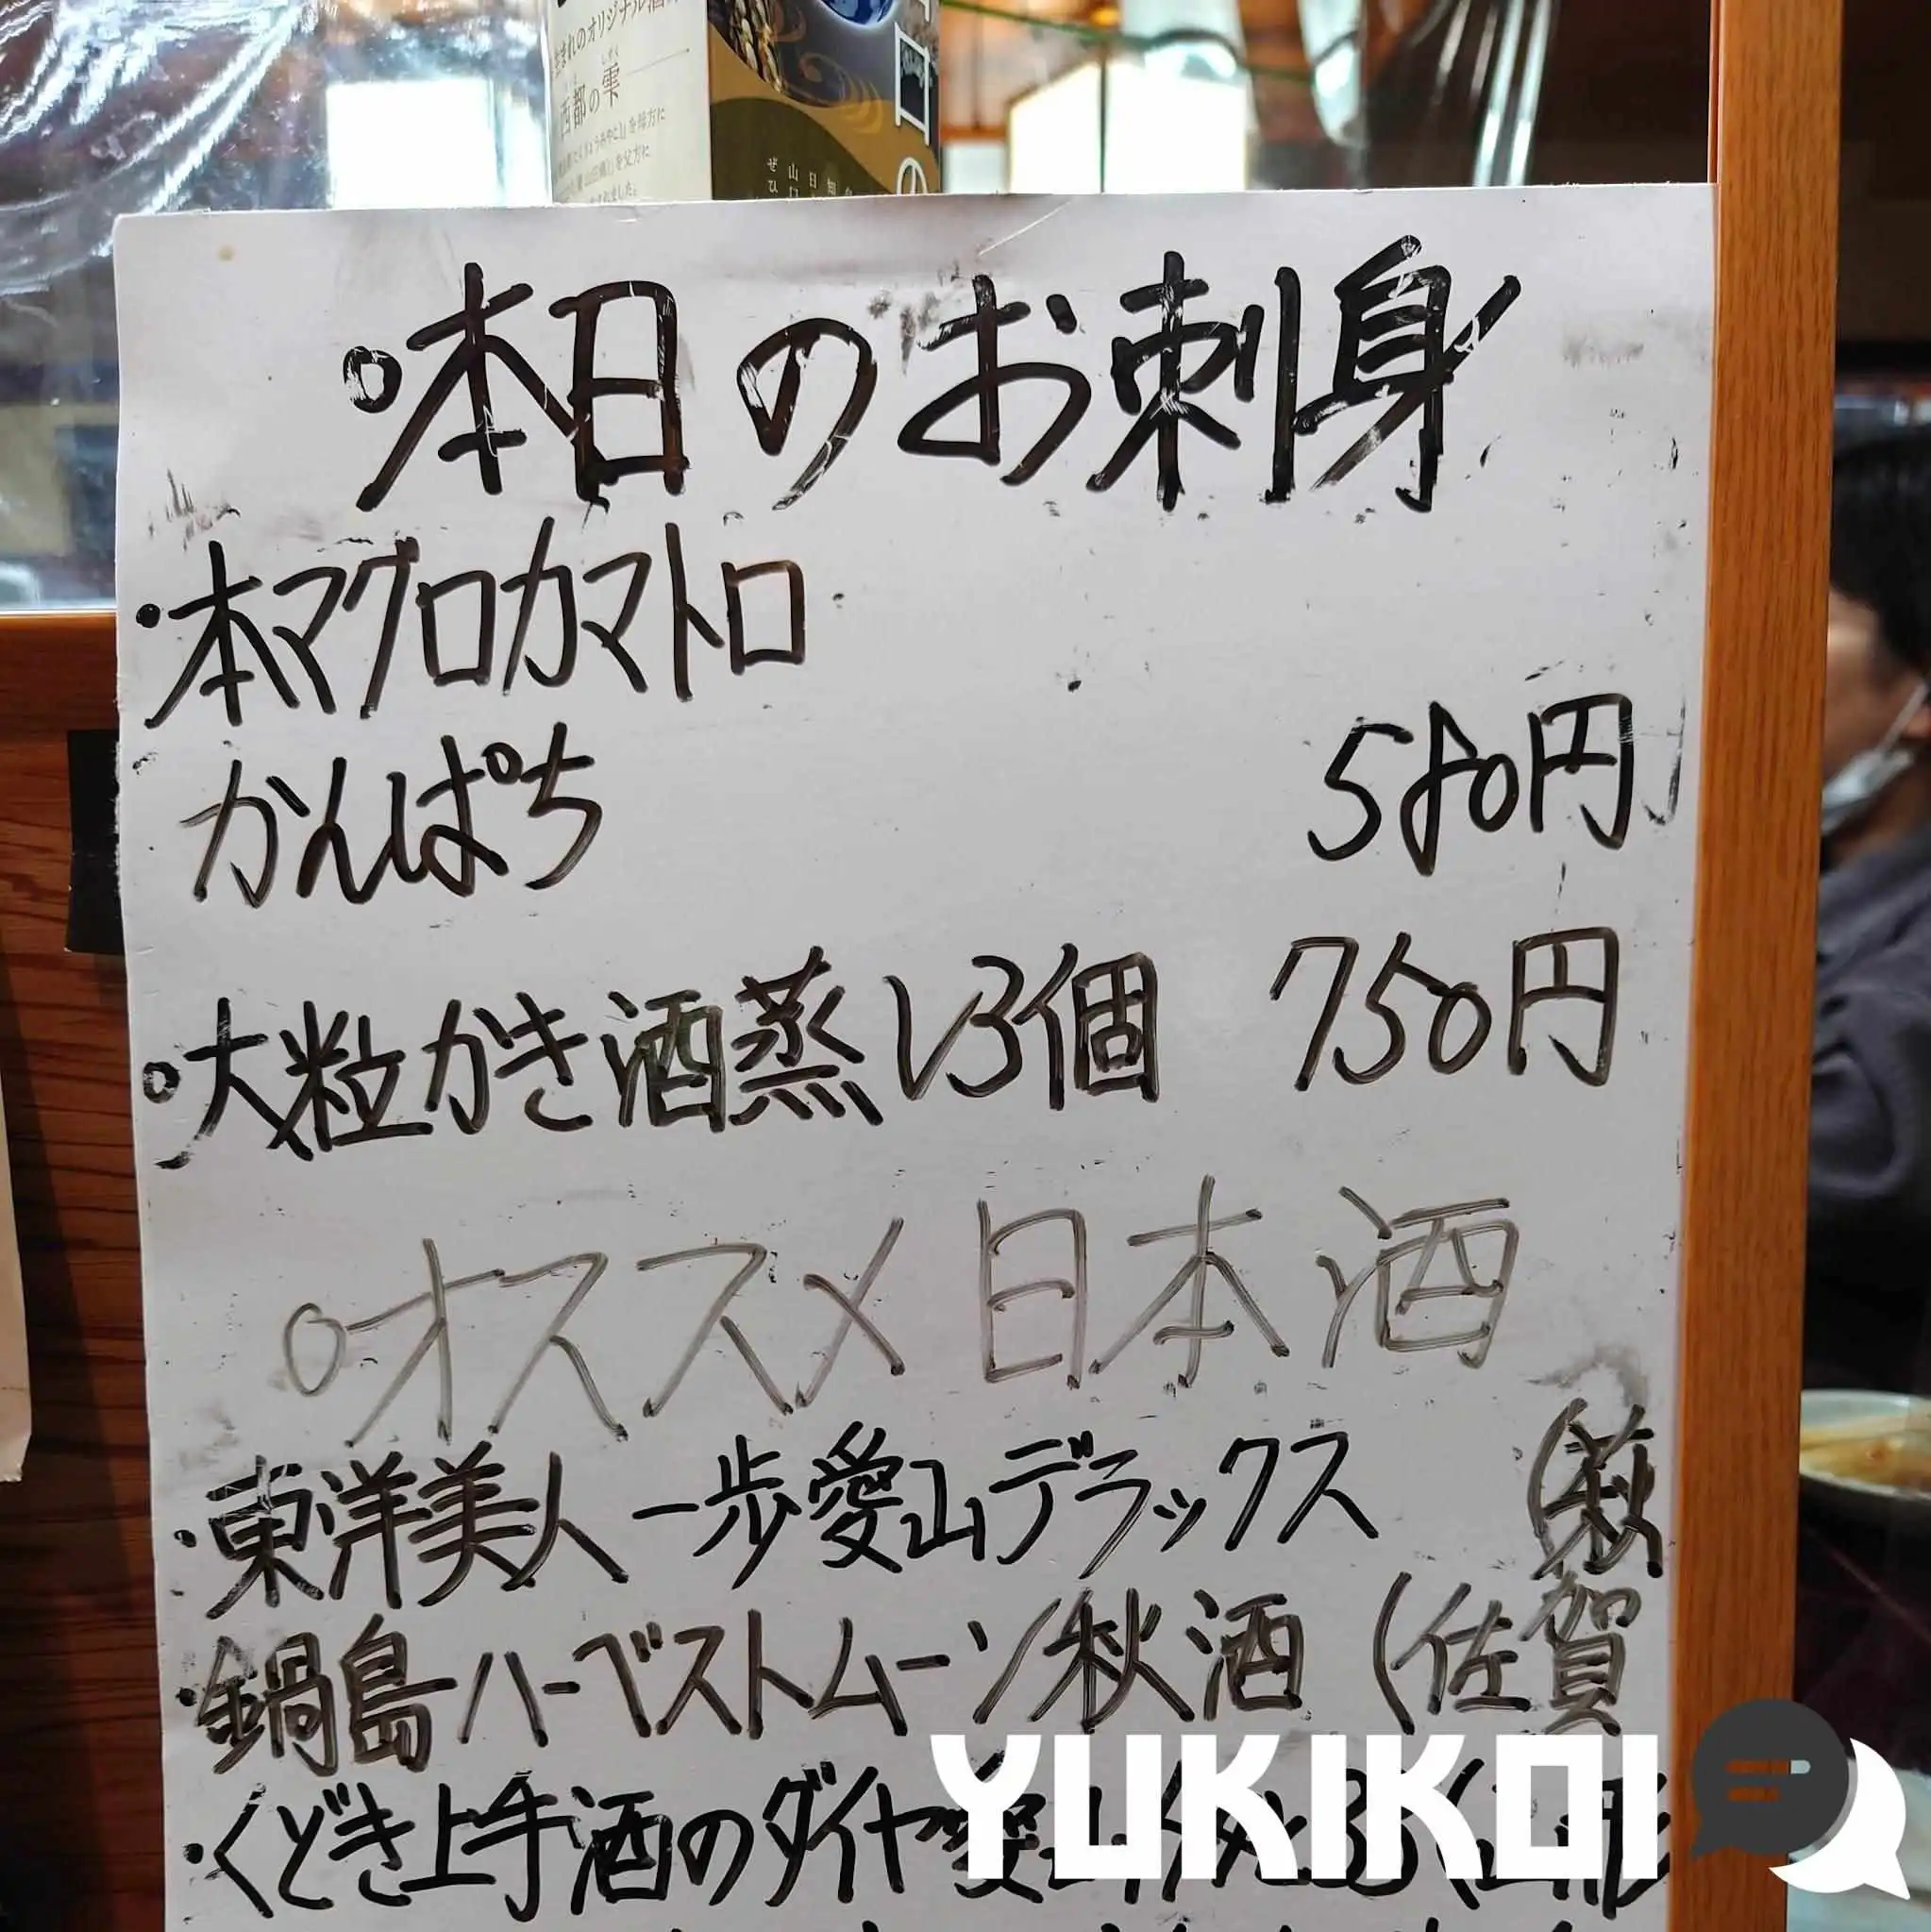 生まれのオリジナル酒米
西都の雫
本日のお刺身
・本マグロカマトロ
かんぱち 580円
大粒かき酒蒸し3個 750円
オススメ日本酒
・東洋美人 一歩愛山デラックス (萩
・鍋島ハーベストムーン秋酒 (佐賀
・くどき上手酒のダイヤ愛山
YUKIKOI